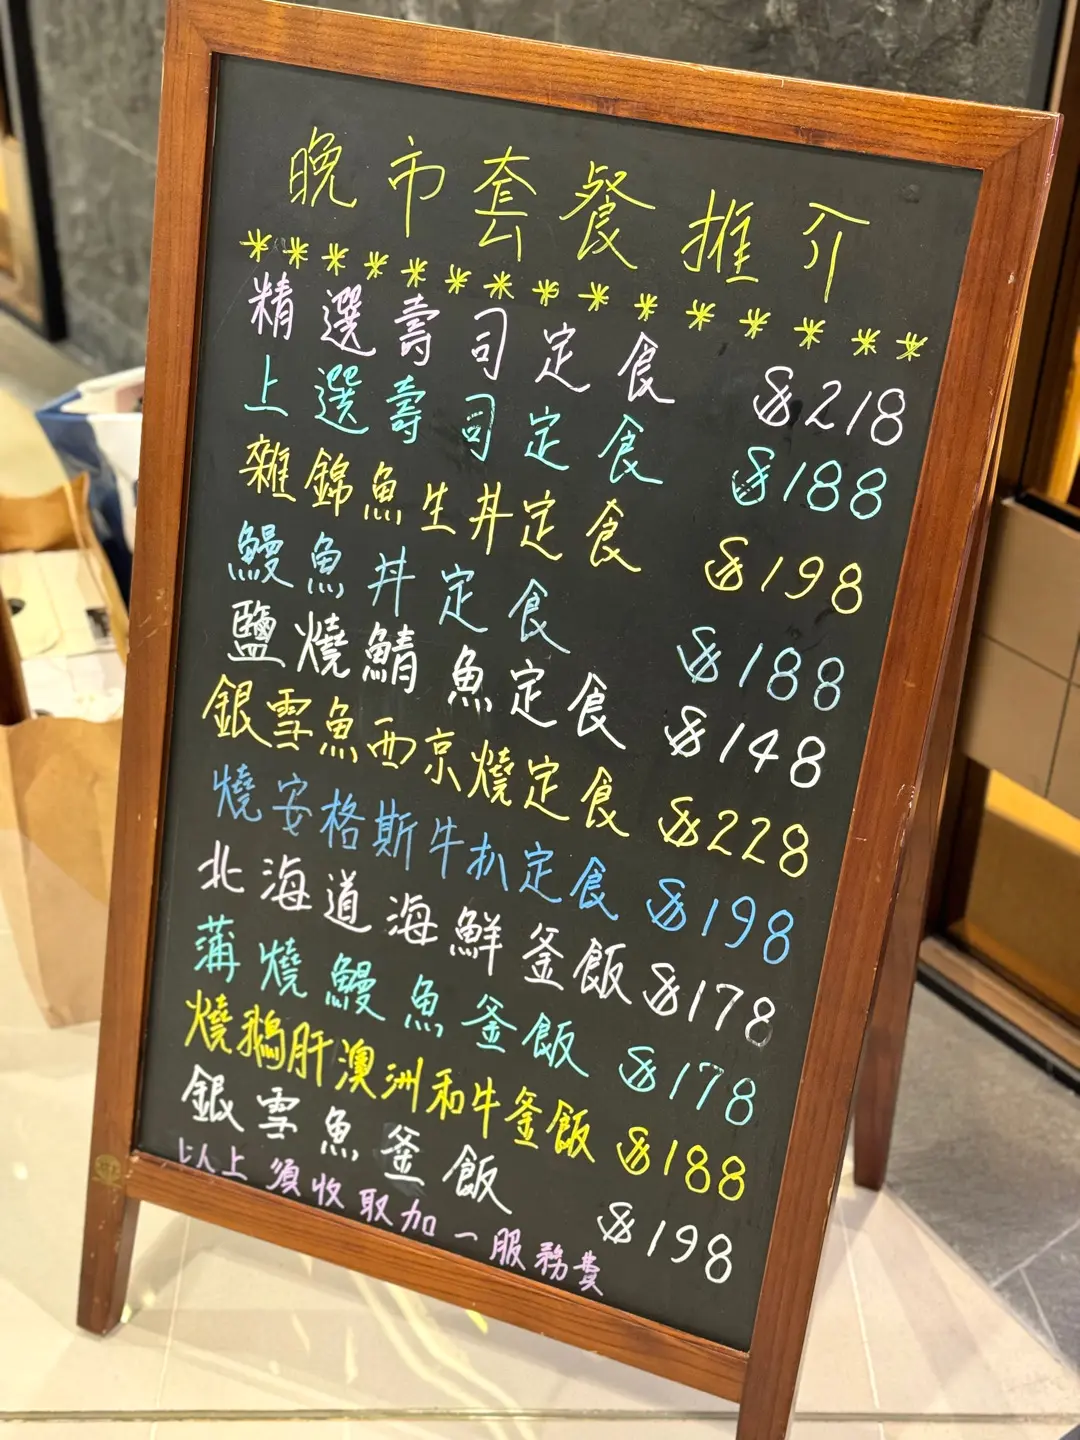 晚市套餐推介
***************
精選壽司定食 $218
上選壽司定食 $188
雜錦魚生丼定食 $198
鰻魚丼定食 $188
鹽燒鯖魚定食 $148
銀雪魚西京燒定食 $228
燒安格斯牛扒定食 $198
北海道海鮮釜飯 $178
蒲燒鰻魚釜飯 $178
燒鵝肝澳洲和牛釜飯 $188
銀雪魚釜飯 $198
以上須收取加一服務費